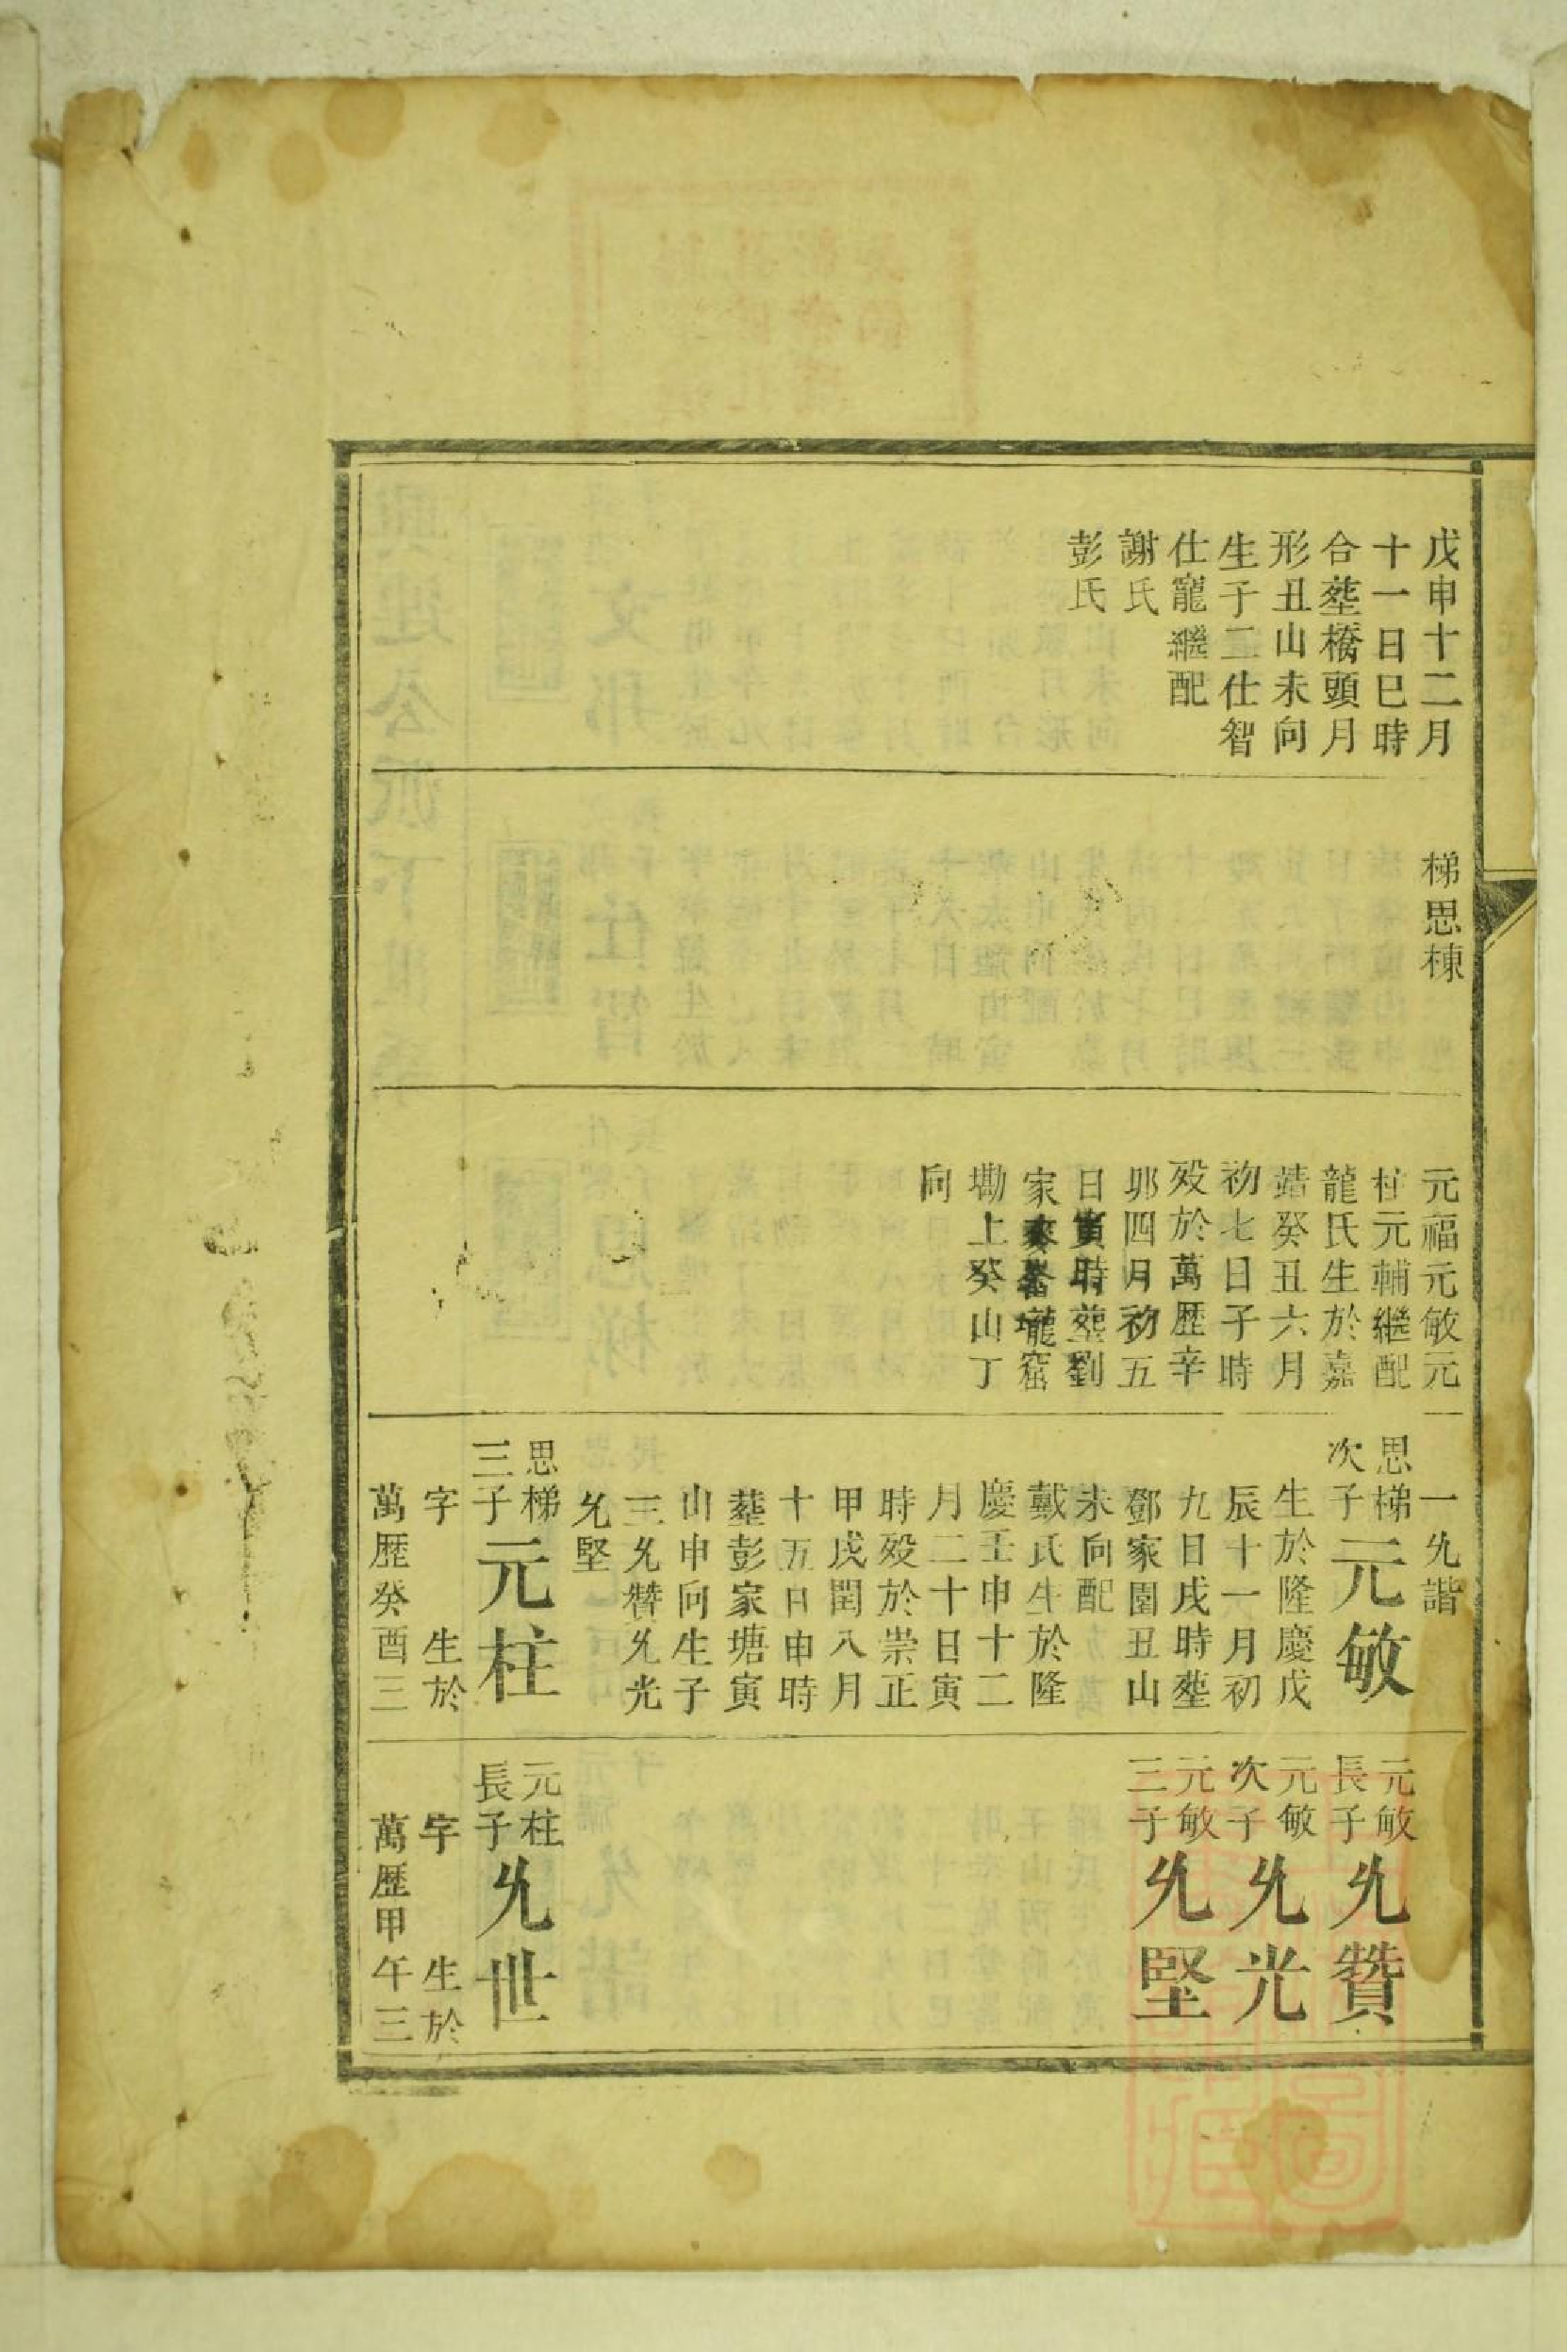 戊申十二月
十一日巳時
合塟橋頭月
形丑山未向
生子二仕智
仕寵繼配
謝氏
彭氏
梯思棟
元福元敏元
柱元輔繼配
龍氏生於嘉
靖癸丑六月
初七日子時
歿於萬歷辛
卯四月初五
日寅時塟劉
家
窰
墈上癸山丁
向
一允諧
思梯
次子
元敏
生於隆慶戊
辰十一月初
九日戌時塟
鄧家園丑山
未向配
戴氏生於隆
慶壬申十二
月二十日寅
時歿於崇正
甲戌閏八月
十五日申時
塟彭家塘寅
山申向生子
三允贊允光
允堅
思梯
三子
元柱
字 生於
萬歷癸酉三
元敏
長子
允贊
元敏
次子
允光
元敏
三子
允堅
元柱
長子
允世
字 生於
萬歷甲午三